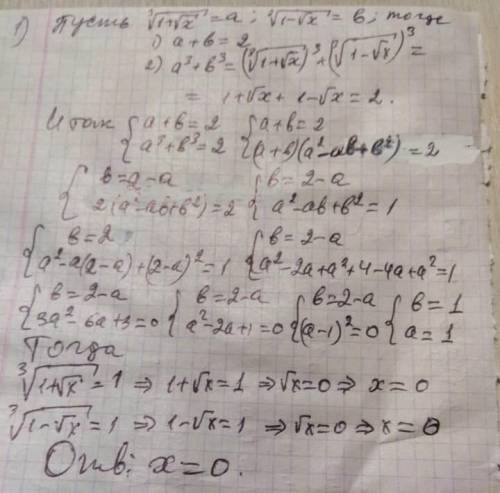 1) Пусть ∛(1+√x) = a; ∛(1-√x) = b; тогда
1) a+b=2
2) a³+b³=(∛(1+√x))³+(∛(1-√x))³=
= 1+√x + 1-√x = 2.
Итак { a+b=2 a³+b³=2 { a+b=2 (a+b)(a²-ab+b²)=2
{ b=2-a 2(a²-ab+b²)=2 { b=2-a a²-ab+b²=1
{ b=2 a²-a(2-a)+(2-a)²=1 { b=2-a a²-2a+a²+4-4a+a²=1
{ b=2-a 3a²-6a+3=0 { b=2-a a²-2a+1=0 { b=2-a (a-1)²=0 { b=1 a=1
Тогда
∛(1+√x)=1 ⇒ 1+√x=1 ⇒ √x=0 ⇒ x=0
∛(1-√x)=1 ⇒ 1-√x=1 ⇒ √x=0 ⇒ x=0
Отв: x=0.